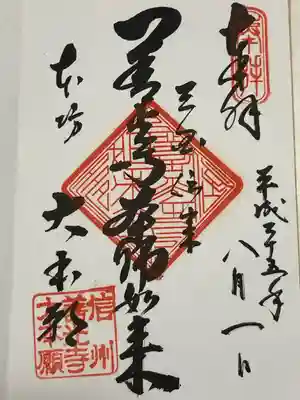 奉拝
平成二十五年
八月一日
三国伝来
善光寺如来
本坊
大本願
信州
善光寺
大本願